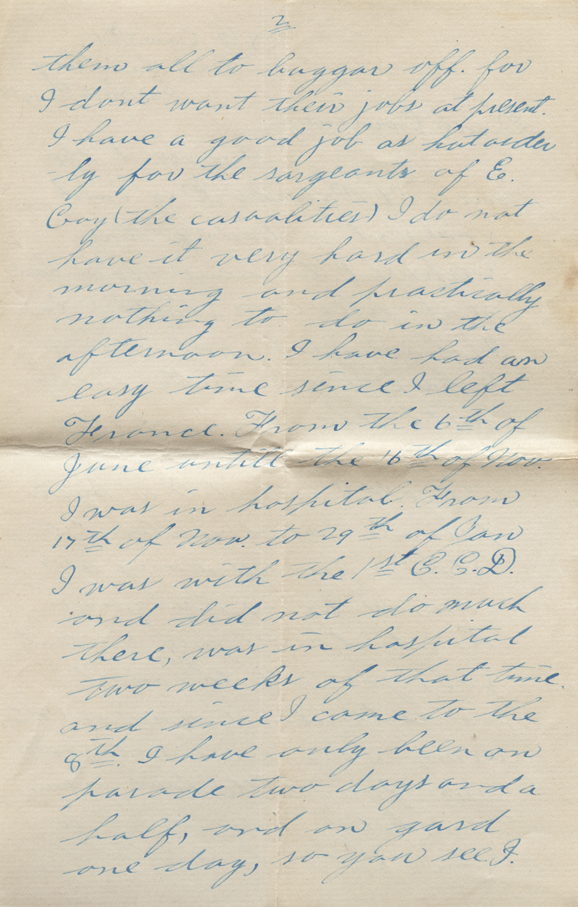 2
them all to buggar off. for
I dont want their jobs at present.
I have a good job as hut order
ly for the sargeants of E.
Coy (the casualities) I do not
have it very hard in the
morning and practically
nothing to do in the
afternoon. I have had an
easy time since I left
France. From the 6th of
June untill the 16th of Nov.
I was in hospital. From
17th of Nov. to 29th of Jan
I was with the 1st C.G.D.
and did not do much
there, was in hospital
two weeks of that time
and since I came to the
8th. I have only been on
parade two days and a
half, and on gard
one day, so you see I.